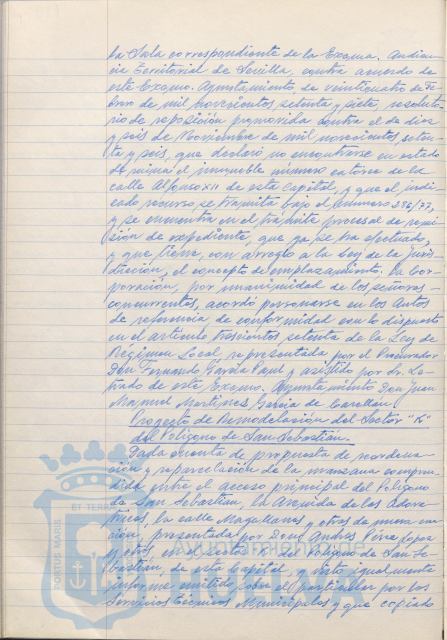 la Sala correspondiente de la Excma. Audien-
cia Territorial de Sevilla, contra acuerdo de
este Excmo. Ayuntamiento, de veinticuatro de Fe-
brero de mil novecientos setenta y siete, resoluto-
rio de reposición promovida contra el de diez
y seis de Noviembre de mil novecientos seten-
ta y seis, que declaró no encontrarse en estado
de ruina el inmueble número catorce de la
calle Alfonso XII de esta Capital, y que el indi-
cado recurso se tramita bajo el número 396/77,
y se encuentra en el trámite procesal de remi-
sión de expediente, que ya se ha efectuado,
y que tiene, con arreglo a la Ley de la Juris-
dicción, el concepto de emplazamiento. La Cor-
poración, por unanimidad de los señores
concurrentes, acordó personarse en los Autos
de referencia de conformidad con lo dispuesto
en el artículo trescientos setenta de la Ley de
Régimen Local, representada por el Procurador
Don Fernando García Paul y asistido por Sr. Le-
trado de este Excmo. Ayuntamiento Don Juan
Manuel Martínez García de
Proyecto de Remodelación del Sector "K"
del Polígono de San Sebastián.
Dada cuenta de propuesta de reordena-
ción y reparcelación de la manzana compren-
dida entre el acceso principal del Polígono
de San Sebastián, la Avenida de los Adora-
trices, la calle Magallanes y otras de nueva crea-
ción, presentada por Don Andrés Pérez
y otros, en el Sector K del Polígono de San Se-
bastián, de esta Capital, y visto igualmente
informe emitido sobre el particular por los
Servicios Técnicos Municipales y que copiado
PORTUS MARIS ET TERRAE
Ayuntamiento de
HUELVA